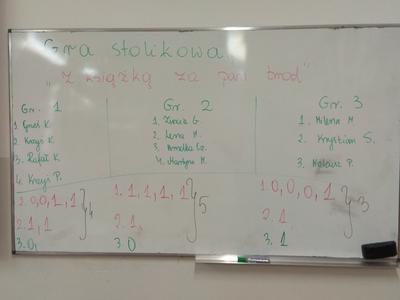 Gra stolikowa
"Z książką za pan brat"
Gr. 1
1. Gr K.
2. Krzyś K.
3. Rafał K.
4. Krzyś P.
1. 0,0,1,1
2. 1,1
3. 0,
4
Gr. 2
1. Zuzia G.
2. Lena M.
3. Amelka
4. Martyna M.
1. 1,1,1,1
2. 1,
3. 0
5
Gr. 3
1. Milena M
2. Krystian S.
3. Mateusz P.
1. 0,0,0,1
2. 1
3. 1
3